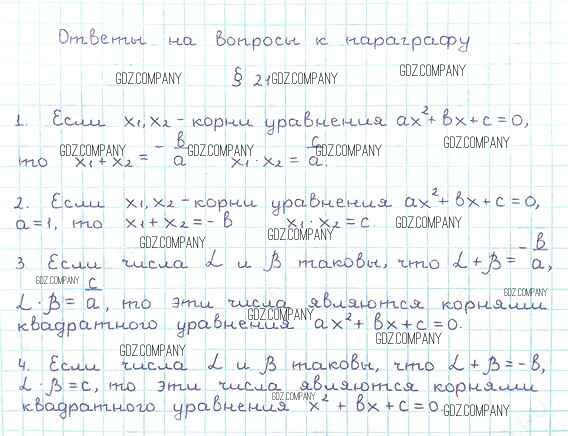 Ответы на вопросы к параграфу
GDZ.COMPANY § 21 GDZ.COMPANY GDZ.COMPANY
1. Если x₁, x₂ - корни уравнения ax² + bx + c = 0,
GDZ.COMPANY
то x₁ + x₂ = - b/a x₁ · x₂ = c/a.
GDZ.COMPANY GDZ.COMPANY GDZ.COMPANY
2. Если x₁, x₂ - корни уравнения ax² + bx + c = 0,
a = 1, то x₁ + x₂ = - b x₁ · x₂ = c GDZ.COMPANY
GDZ.COMPANY GDZ.COMPANY
3 Если числа α и β таковы, что α + β = - b/a,
GDZ.COMPANY GDZ.COMPANY
α · β = c/a, то эти числа являются корнями
GDZ.COMPANY
квадратного уравнения ax² + bx + c = 0.
GDZ.COMPANY GDZ.COMPANY
4. Если числа α и β таковы, что α + β = - b,
α · β = c, то эти числа являются корнями
GDZ.COMPANY
квадратного уравнения x² + bx + c = 0 GDZ.COMPANY